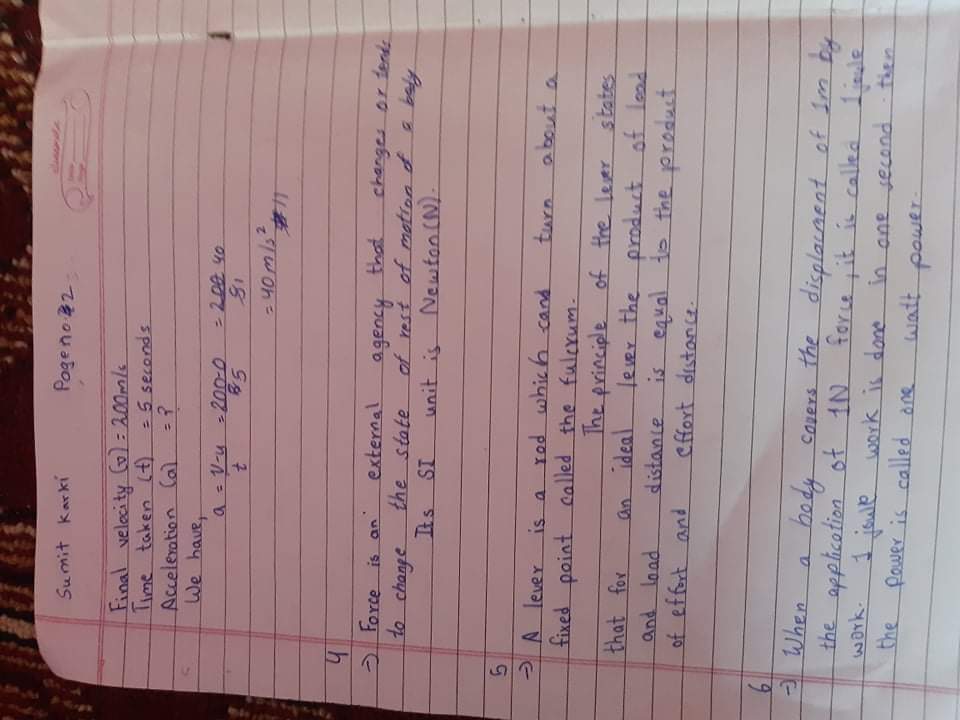 Sumit Karki Pageno 2
Final velocity (v) = 200m/s
Time taken (t) = 5 seconds
Acceleration (a) = ?
We have,
a = v-u = 200-0 = 200 40
t 5 51
= 40 m/s² //
4
→) Force is an external agency that changes or tends
to change the state of rest of motion of a body
Its SI unit is Newton (N).
5
→) A lever is a rod which cand turn about a
fixed point called the fulcrum.
The principle of the lever states
that for an ideal lever the product of load
and load distance is equal to the product
of effort and effort distance.
6
→) When a body covers the displacment of 1m by
the application of 1N force, it is called 1 joule
work. 1 joule work is done in one second then
the power is called one watt power.